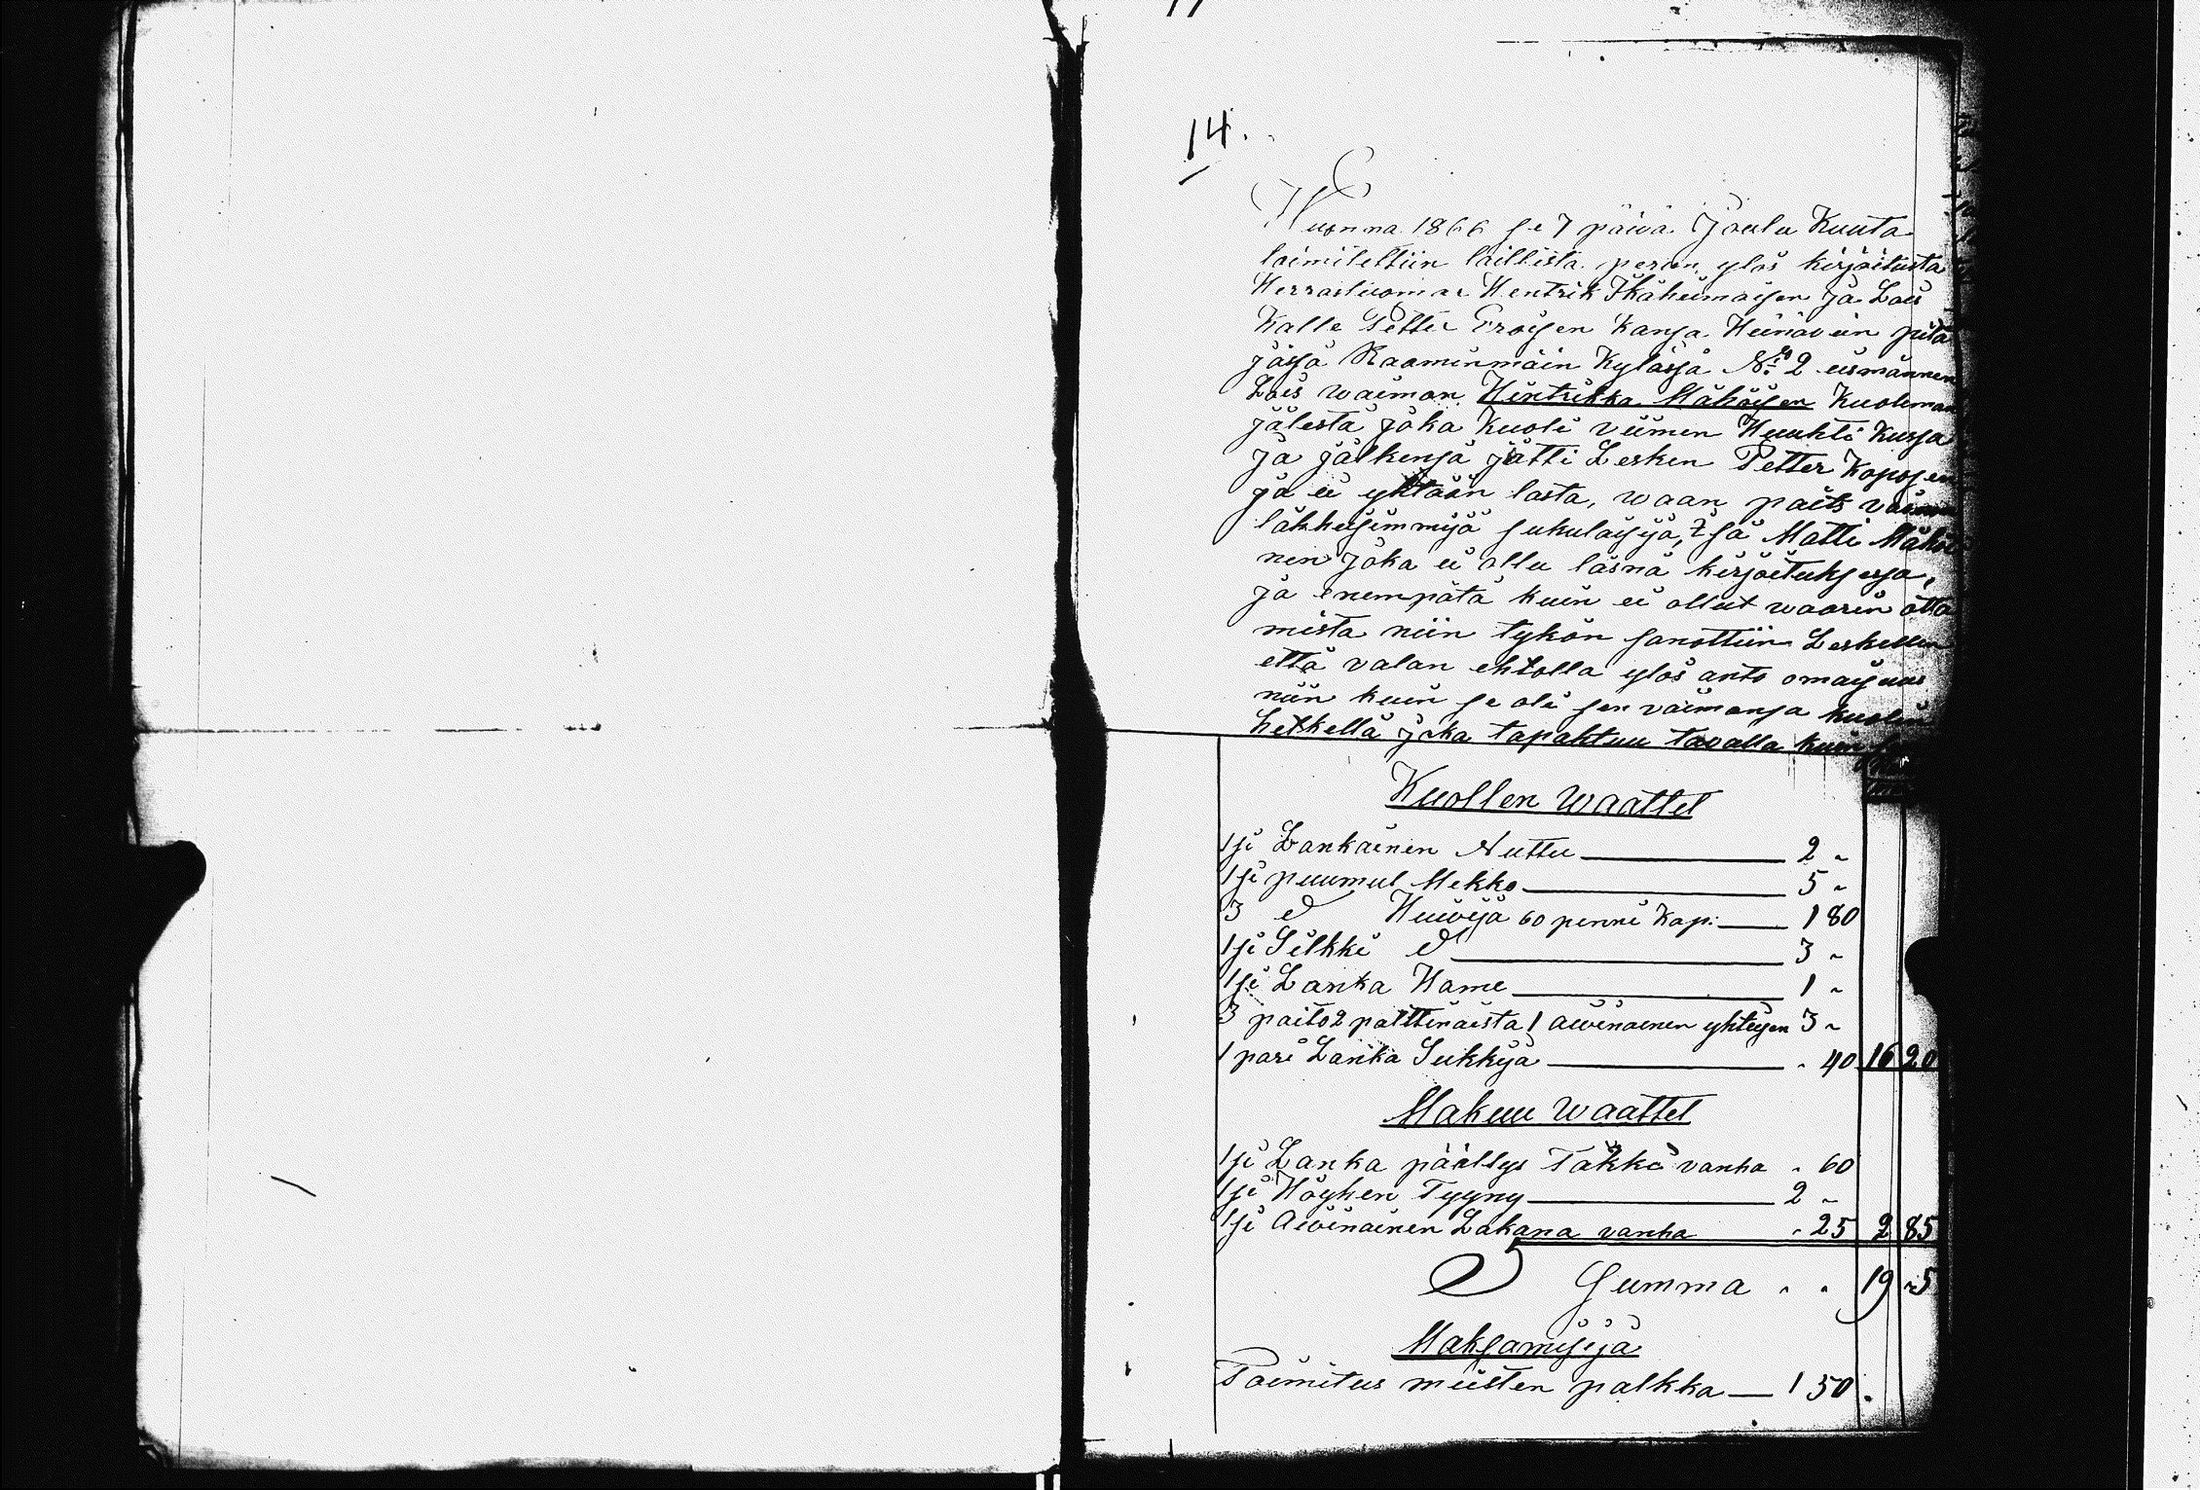 14.
Wuonna 1866 se 7 päivä Joulu Kuuta
toimitettiin laillista perun ylös kirjoitusta
Herrastuomar Hentrik Ikäheimoisen ja Lais
Kalle Petter Eroisen kansa Heinävein pitä
jäsjä Raaminmäin Kyläsjä No 2 eismännen
Lois waimon Hintrikka Mähöisen Kuoleman
jälestä joka kuoli viimen Huuhti kusja
ja jälkensä jätti Lesken Petter Koposen
ja ei yhtään lasta, waan paits
läkheisimmijä sukulaisija, Isä Matti Mähöi
nen joka ei ollu läsnä kirjoituksessa,
ja enempätä kuin ei ollut waarin otta
mista niin tykön sanottiin Leskellen
että valan ehtolla ylös anto omaisuus
niin kuin se oli sen vaimonsa kuolin
hetkellä joka tapahtuu tavalla kuin
Kuollen Waattet
1 si Lankainen Nuttu 2 "
1 si puumul Mekko 5 "
3 d Huivija 60 penni kap: 1 80
1 si Silkki d 3 "
1 si Lanka Hame 1 "
3 paito 2 palttinaista 1 aivinainen yhteisen 3 "
1 pari Lanka Sukkija " 40 16 20
Makuu Waattet
1 si Lanka päällys Täkki vanha " 60
1 si Höyhen Tyyny 2 "
1 si Aivinainen Lakana vanha " 25 2 85
Summa " " 19 "5
Maksamisija
Toimitus miisten palkka 1 50